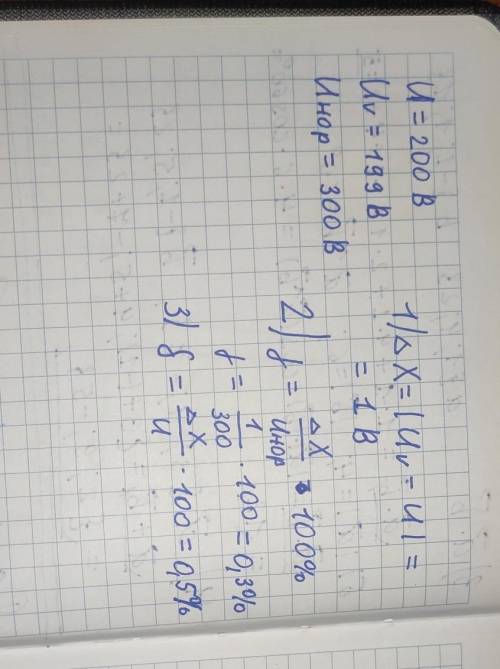 U = 200 В
Uv = 199 В
Uнор = 300 В
1) ΔX = | Uv = U | =
= 1 В
2) γ = ΔX / Uнор · 100%
γ = 1 / 300 · 100 = 0,3%
3) δ = ΔX / U · 100 = 0,5%